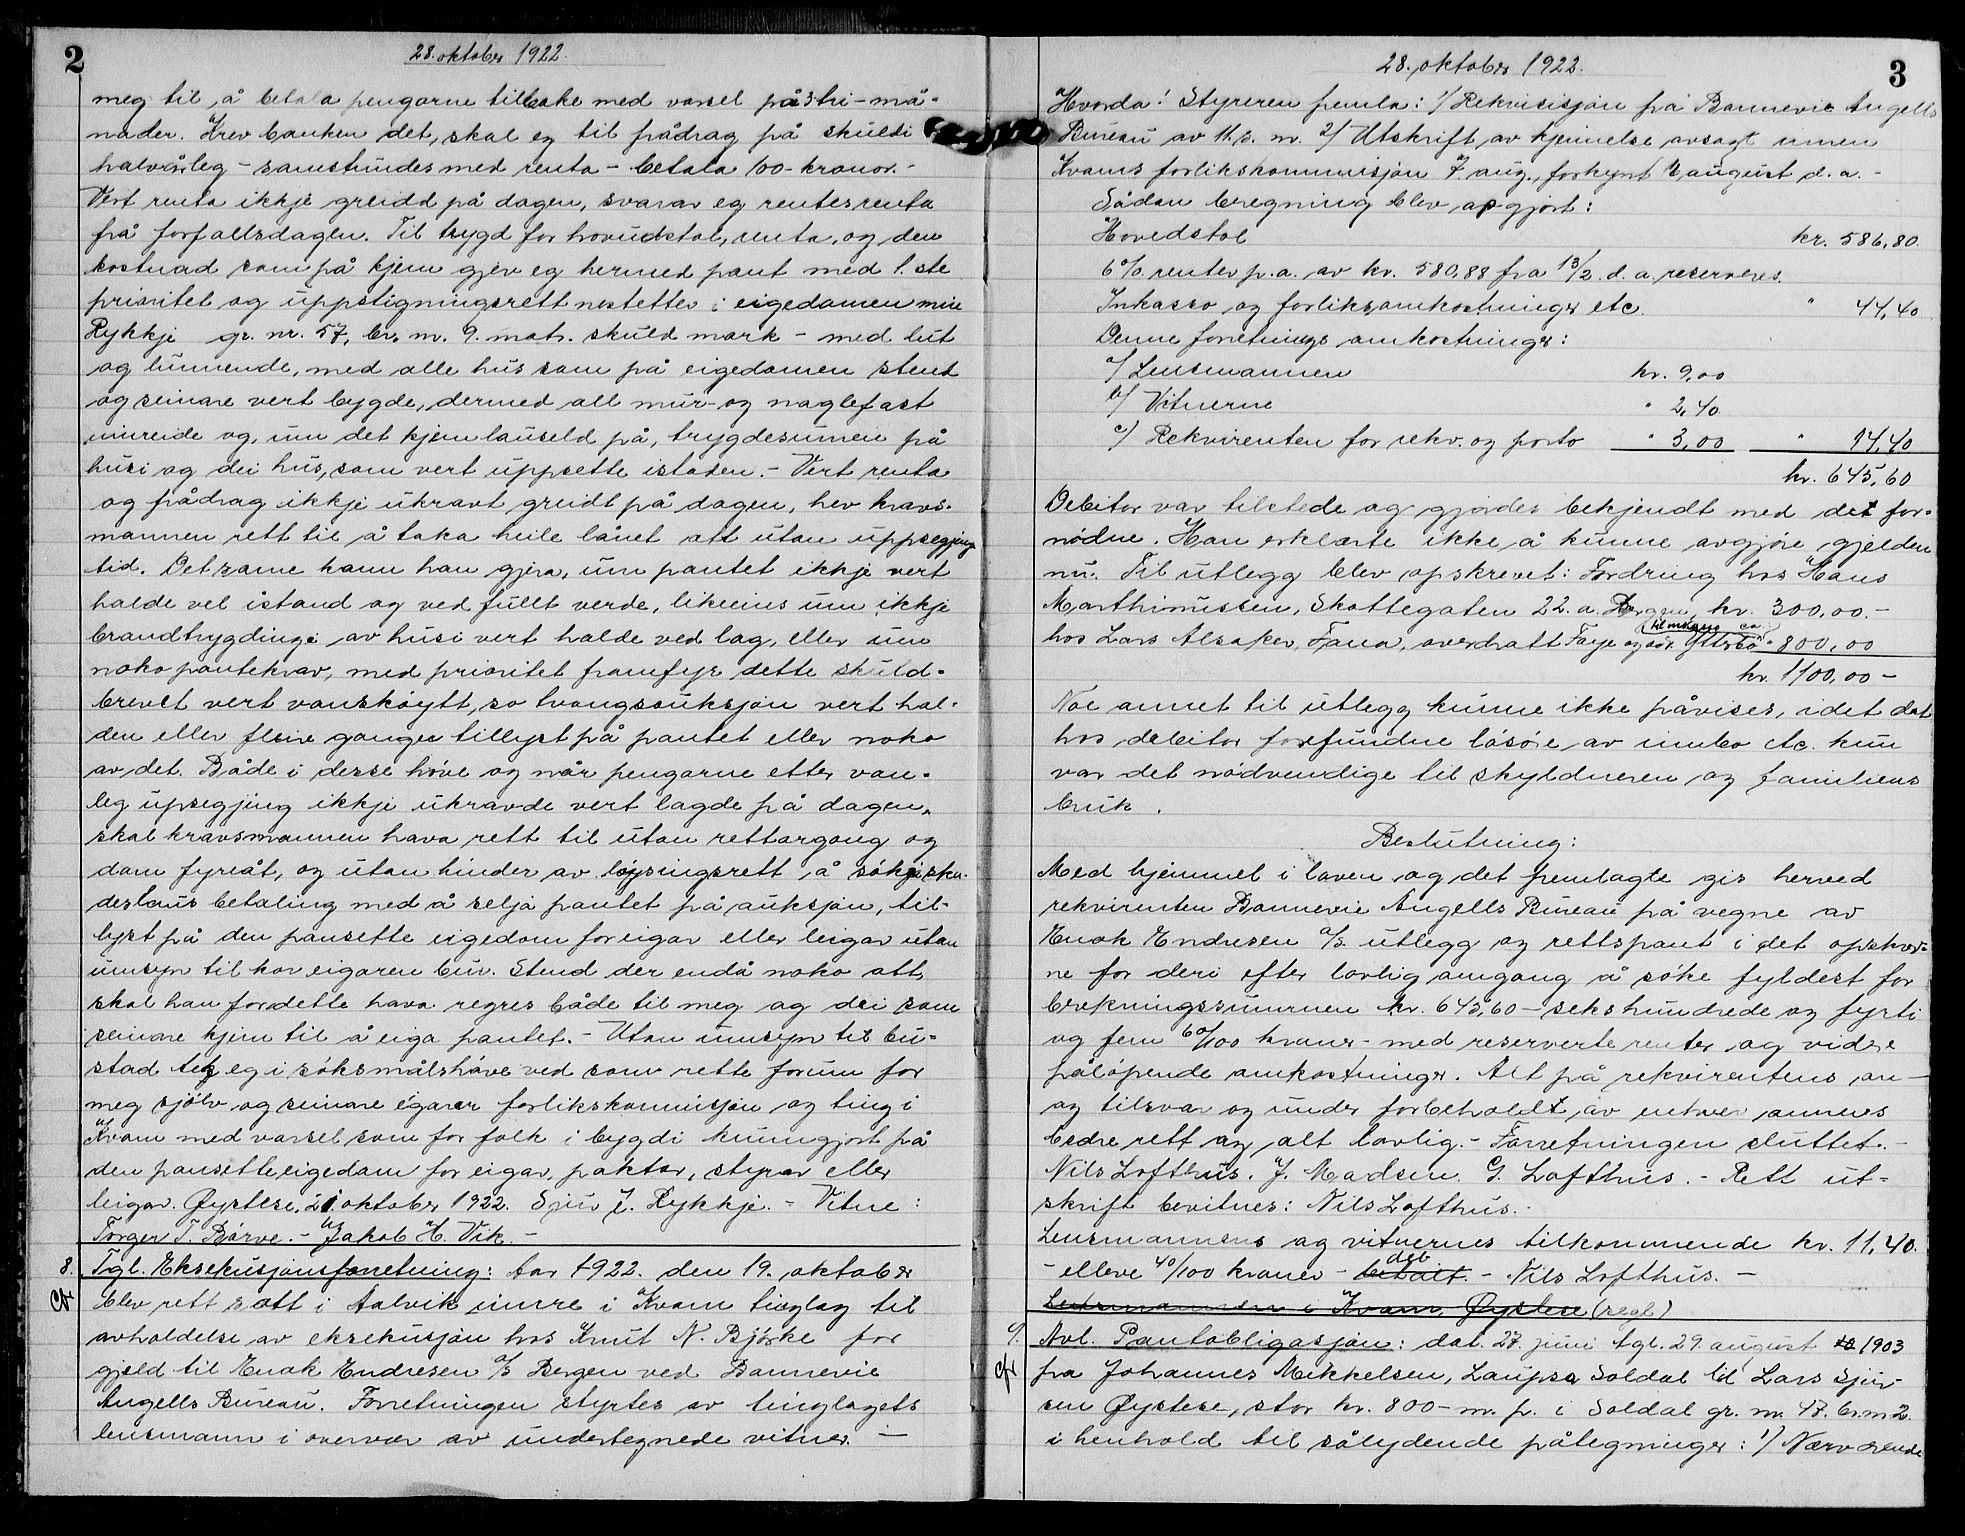 2
28. oktober 1922.
meg til å betala pengarne tilbake med varsel på 3 tri-må-
nader. Krev banken det, skal eg til frådrag på skuldi
halvårleg - samstundes med renta - betala 100 - kronor. -
Vert renta ikkje greidd på dagen, svarar eg rentesrenta
frå forfallsdagen. Til trygd for hovudstol, renta, og den
kostnad som på kjem gjev eg hermed pant med 1. ste
prioritet og uppstigningsrett nestetter i eigedomen min
Rykkje gr. nr. 57, br. nr. 9. matr. skuld mark - med lut
og lunnende, med alle hus som på eigedomen stend
og seinare vert bygde, dermed all mur- og naglefast
inreide og, um det kjem lauseld på, trygdesumen på
husi og dei hus, som vert uppsette istaden. - Vert renta
og frådrag ikkje ukravt greidt på dagen, hev kravs-
mannen rett til å taka heile lånet att utan uppsegjings
tid. Det same kann han gjera, um pantet ikkje vert
halde vel istand og ved fullt verde, likeeins um ikkje
brandtrygdingi av husi vert halde ved lag, eller um
noko pantekrav, med prioritet framfyr dette skuld-
brevet vert vanskøytt, so tvangsauksjon vert hal-
den eller fleire gonger tillyst på pantet eller noko
av det. Både i desse høve og når pengarne etter van-
leg upsegjing ikkje ukravde vert lagde på dagen,
skal kravsmannen hava rett til utan rettargong og
dom fyreåt, og utan hinder av løysingsrett å søkje ska-
deslaus betaling med å selja pantet på auksjon, til-
lyst på den pansette eigedom for eigar eller leigar utan
umsyn til kor eigaren bur. Stend der endå noko att,
skal han for dette hava regres både til meg og dei som
seinare kjem til å eiga pantet. - Utan umsyn til bu-
stad teg eg i søksmålshøve ved som rette forum for
meg sjølv og seinare eigarar forlikskommisjon og ting i
Kvam med varsel som for folk i bygdi kunngjort på
den pansette eigedom for eigar, paktar, styrar eller
leigar. Øystese, 21 oktober 1922. Sjur J. Rykkje. - Vitne:
Torgeir T. Børve. - Jakob H. Vik. -
8. Tgl. Eksekusjonsforretning: Aar 1922. den 19. oktober
blev rett satt i Aalvik innre i Kvam tinglag til
avholdelse av eksekusjon hos Knut N. Bjørke for
gjeld til Enok Endresen A/S Bergen ved Bannevie
Angells Bureau. Forretningen styrtes av tinglagets
lensmann i overvær av undertegnede vitner. -
3
28. oktober 1922.
Hvorda! Styreren fremla: 1/ Rekvisisjon fra Bannevie Angells
Bureau av 11. s. m. 2/ Utskrift av kjennelse avsagt innen
Kvams forlikskommisjon 7. aug., forkynt august d. a. -
Sådan beregning blev opgjort:
Hovedstol kr. 586,80.
6% renter p. a. av kr. 580,88 fra 13/2. d. a. reserveres.
Inkasso og forliksomkostninger etc. " 44,40
Denne forretnings omkostninger:
a/ Lensmannen kr. 9,00
b/ Vitnerne " 2,40
c/ Rekvirenten for rekv. og porto " 3,00 " 14,40
kr. 645,60
Debitor var tilstede og gjordes bekjendt med det for-
nødne. Han erklærte ikke å kunne avgjøre gjelden
nu. Til utlegg blev opskrevet: Fordring hos Hans
Marthinussen, Skottegaten 22. a. Bergen, kr. 300,00. -
hos Lars Alsaker, Fana, overdratt Farje og adr. Ytrebø " 800,00
kr. 1100,00 -
Noe annet til utlegg kunne ikke påvises, idet det
hos debitor forefundne løsøre av innbo etc. kun
var det nødvendige til skyldneren og familiens
bruk.
Beslutning:
Med hjemmel i loven og det fremlagte gis herved
rekvirenten Bannevie Angells Bureau på vegne av
Enok Endresen A/S. utlegg og rettspant i det opskrev-
ne for deri efter lovlig omgang å søke fyldest for
berekningssummen kr. 645,60 - sekshundrede og fyrti
og fem 60/100 kroner - med reserverte renter og videre
påløpende omkostninger. Alt på rekvirentens an-
og tilsvar og under forbeholdt av enhver annens
bedre rett og alt lovlig. - Forretningen sluttet. -
Nils Lofthus. J. Madsen. G. Lofthus. - Rett ut-
skrift bevitnes: Nils Lofthus. -
Lensmannens og vitnernes tilkommende kr. 11,40.
- elleve 40/100 kroner - betalt. - Nils Lofthus. -
Lensmannen i Kvam, Øystese (segl)
9. Avl. Pantobligasjon: dat. 27. juni tgl. 29. august 1903
fra Johannes Mikkelsen, Laupsa Soldal til Lars Sjur-
sen Øystese, stor kr. 800 - m. p. i Soldal gr. nr. 47. br. nr 2.
i henhold til sålydende påtegninger: 1/ Nærværende